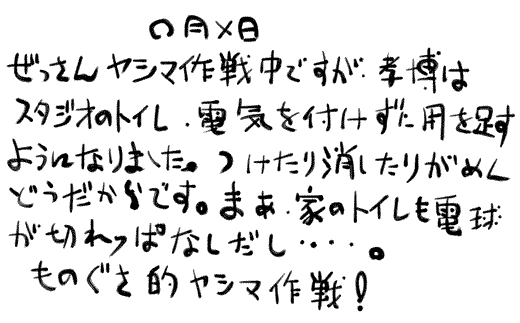 ○月×日
ぜっさんヤシマ作戦中ですが、孝博は
スタジオのトイレ、電気を付けずに用を足す
ようになりました。つけたり消したりがめん
どうだからです。まぁ、家のトイレも電球
が切れっぱなしだし・・・・。
ものぐさ的ヤシマ作戦！